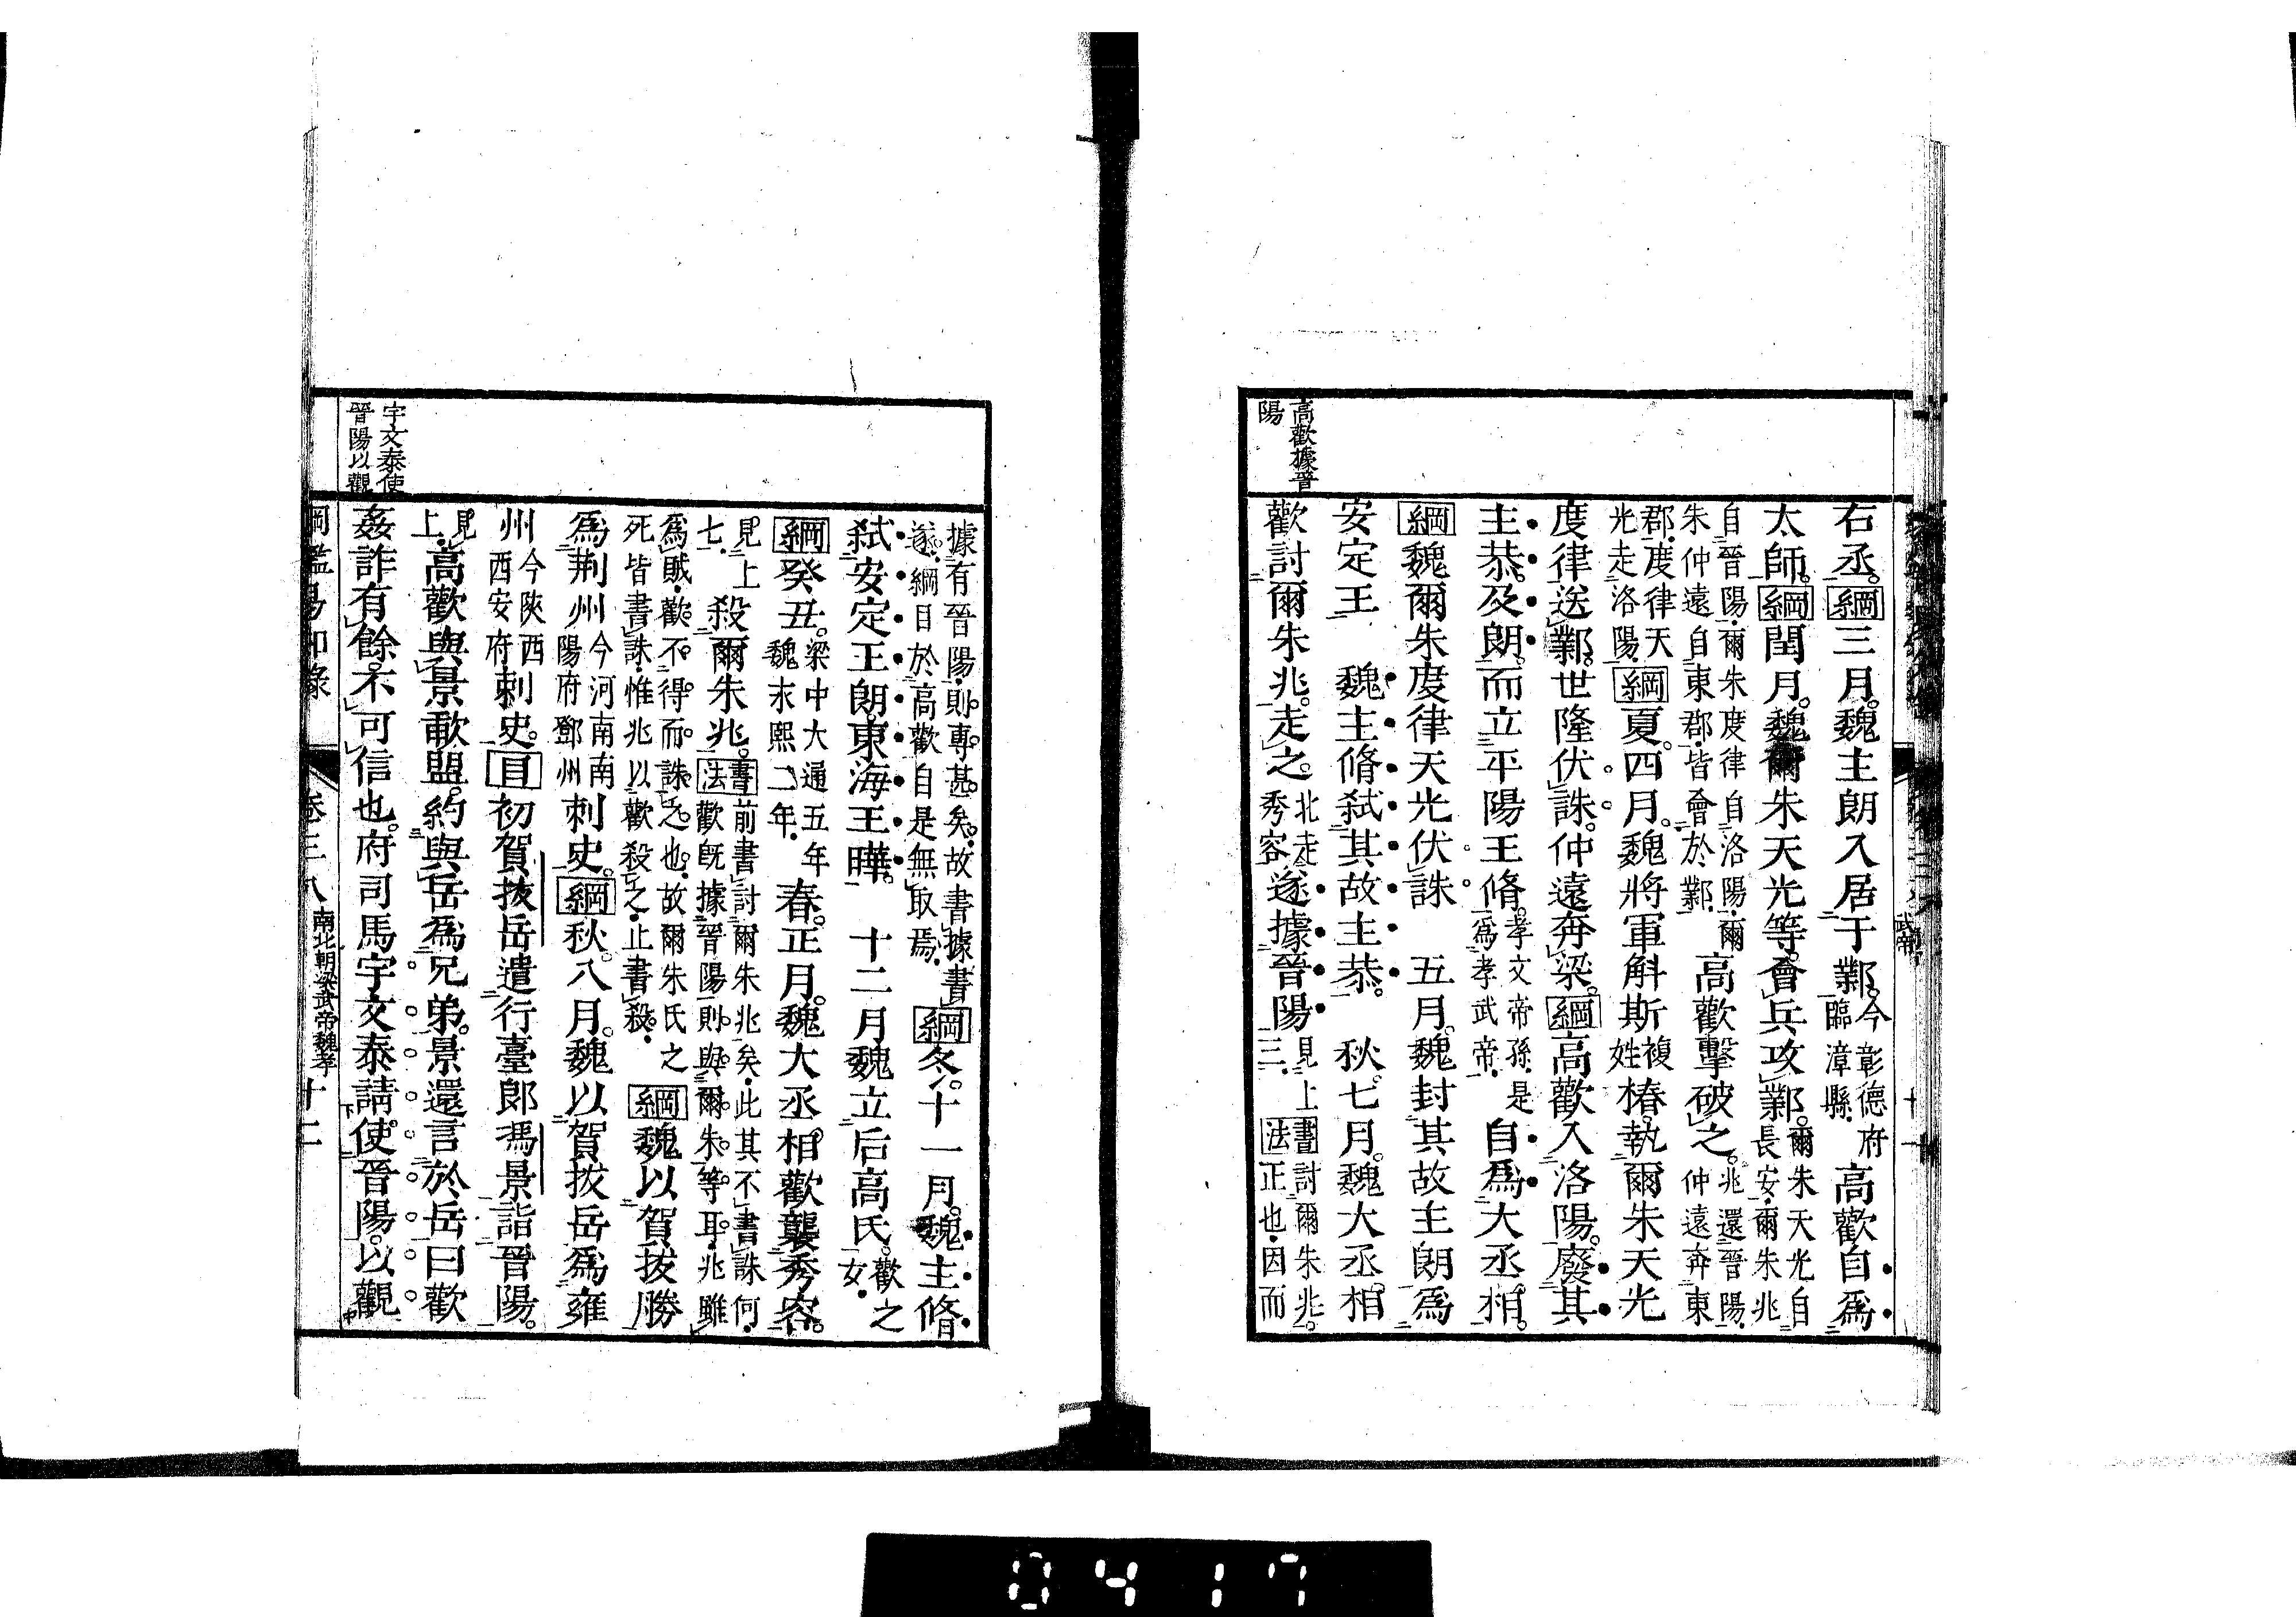 高歡據晉
陽
右丞。綱三月。魏主朗入居于鄴。今彰德府臨漳縣.高歡自爲
太師。綱閏月。魏爾朱天光等。會兵攻鄴。爾朱天光自長安.爾朱兆
自晉陽.爾朱度律自洛陽.爾朱仲遠自東郡.皆會於鄴.高歡擊破之。兆還晉陽.仲遠奔東
郡.度律天光走洛陽.綱夏。四月。魏將軍斛斯複姓椿。執爾朱天光
度律送鄴。世隆伏誅。仲遠奔梁。綱高歡入洛陽。廢其
主恭。及朗。而立平陽王脩。孝文帝孫.是爲孝武帝.自爲大丞相。
綱魏爾朱度律天光伏誅 五月。魏封其故主朗爲
安定王 魏主脩弑其故主恭。 秋七月。魏大丞相
歡討爾朱兆。走之。北走秀容遂據晉陽見上三.書法討爾朱兆。正也.因而
據有晉陽.則專甚矣.故書據書遂.綱目於高歡自是無取焉.綱冬。十一月。魏主脩
弑安定王朗。東海王曄。 十二月魏立后高氏。歡之女.
綱癸丑。梁中大通五年魏永熙二年.春。正月。魏大丞相歡襲秀容。
見上七.殺爾朱兆。書法前書討爾朱兆矣.此其不書誅何.歡旣據晉陽則與爾朱等耳.兆雖
爲賊.歡不得而誅之也.故爾朱氏之死皆書誅.惟兆以歡殺之.止書殺.綱魏以賀拔勝
爲荆州今河南南陽府鄧州刺史。綱秋。八月。魏以賀拔岳爲雍
州今陝西西安府刺史。目初賀拔岳遣行臺郎馮景詣晉陽。
見上.高歡與景歃盟。約與岳爲兄弟。景還言於岳曰歡
姦詐有餘。不可信也。府司馬宇文泰請。使晉陽。以觀
宇文泰使
晉陽以觀
綱鑑易知錄 卷三八 南北朝梁武帝魏孝 十二
0417